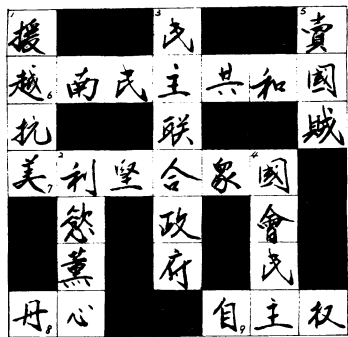 1援 3民 5賣
越6南民主共和國
抗 联 賊
美7 2利坚合衆4國
慾 政 會
薰 府 民
丹8心 自9主权